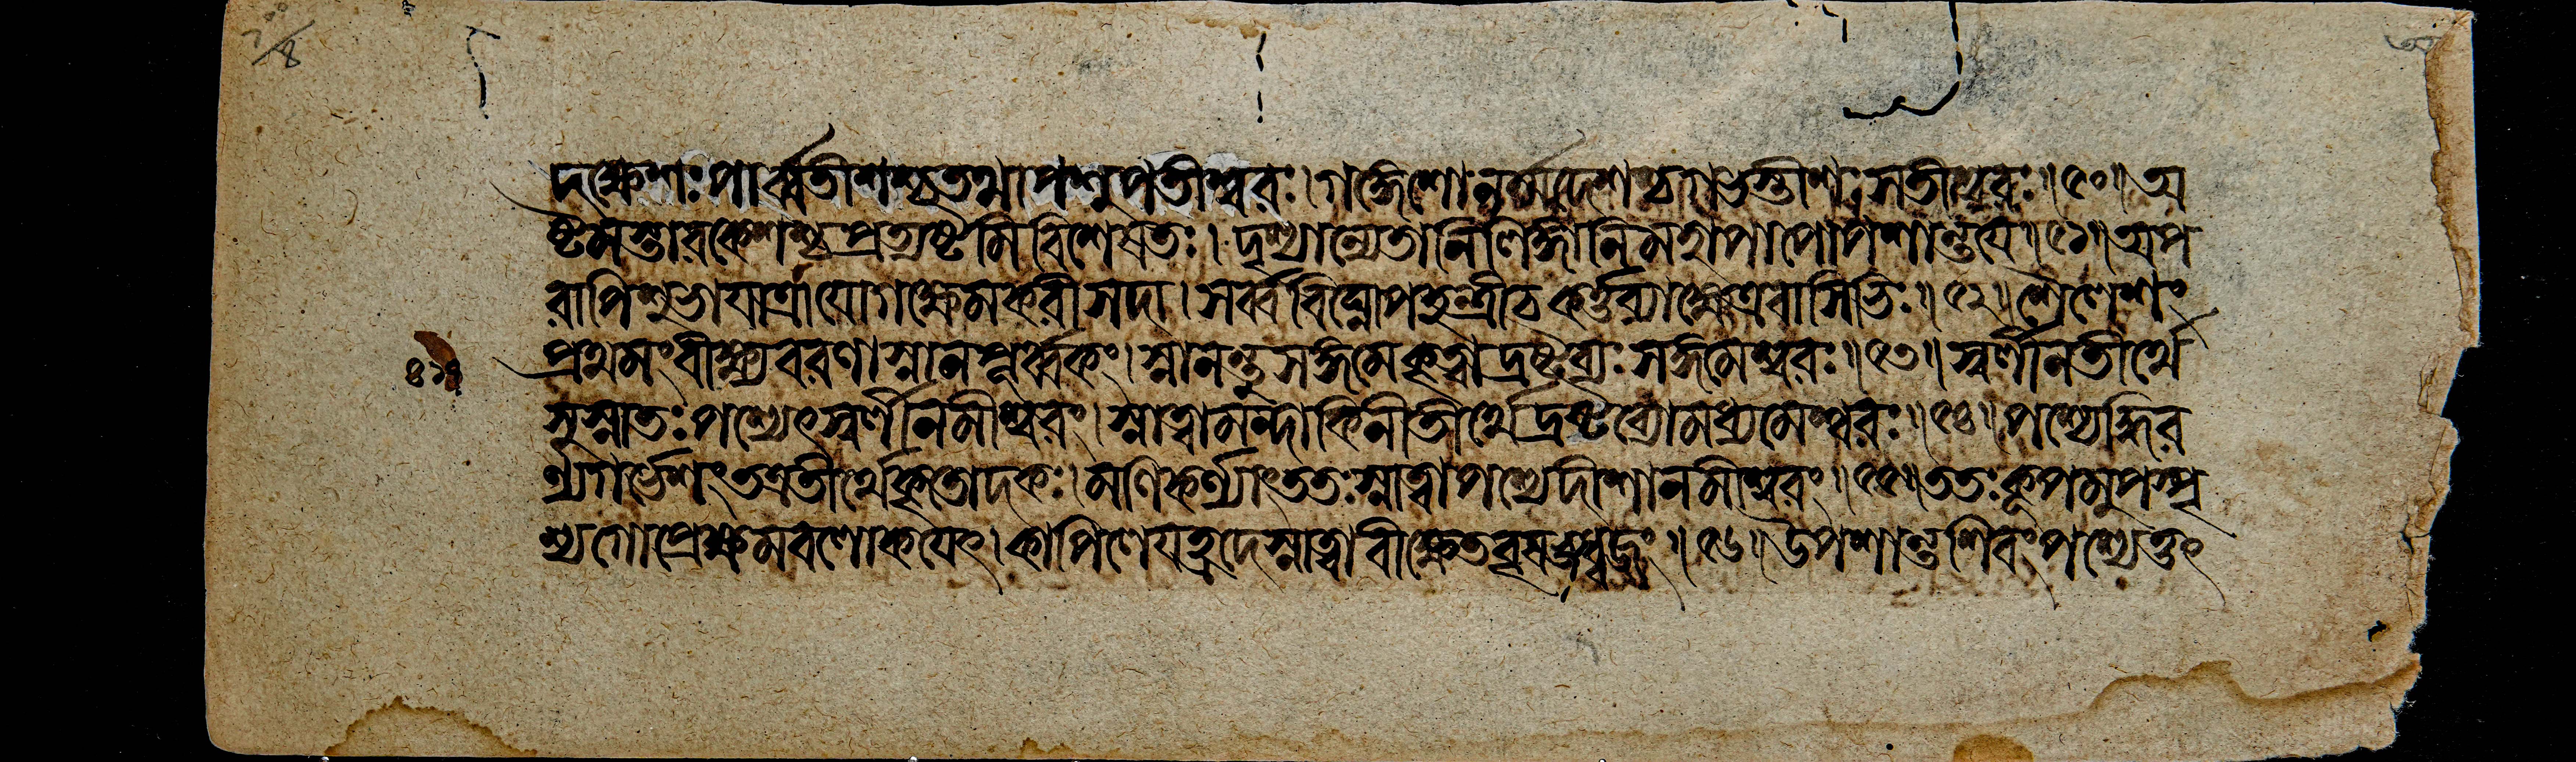 দক্ষেশঃ পার্ব্বতীশশ্চ তথা পশুপতীশ্বরঃ। গঙ্গেশো নর্ম্মদেশশ্চ গভস্তীশঃ সতীশ্বরঃ॥৫০॥ অ
ষ্টমস্তারকেশশ্চ প্রত্যষ্টমি বিশেষতঃ। দৃশ্যান্যেতানি লিঙ্গানি মহাপাপোপশান্তয়ে॥৫১॥ অপ
রাপি শুভা যাত্রা যোগক্ষেমকরী সদা। সর্ব্ববিঘ্নোপহন্ত্রী চ কর্ত্তব্যা ক্ষেত্রবাসিভিঃ॥৫২॥ শৈলেশং
প্রথমং বীক্ষ্য বরণাস্নানপূর্ব্বকং। স্নানন্তু সঙ্গমে কৃত্বা দ্রষ্টব্যঃ সঙ্গমেশ্বরঃ॥৫৩॥ স্বর্লীনতীর্থে
সুস্নাতঃ পশ্যেৎ স্বর্লীনমীশ্বরং। স্নাত্বা মন্দাকিনীতীর্থে দ্রষ্টব্যো মধ্যমেশ্বরঃ॥৫৪॥ পশ্যেদ্ধির
ণ্যগর্ভেশং তত্র তীর্থে কৃতোদকঃ। মণিকর্ণ্যাং ততঃ স্নাত্বা পশ্যেদীশানমীশ্বরং॥৫৫॥ ততঃ কূপমুপস্পৃ
শ্য গোপ্রেক্ষমবলোকয়েৎ। কাপিলেয়হ্রদে স্নাত্বা বীক্ষেত বৃষভধ্বজং॥৫৬॥ উপশান্তশিবং পশ্যেত্তৎ